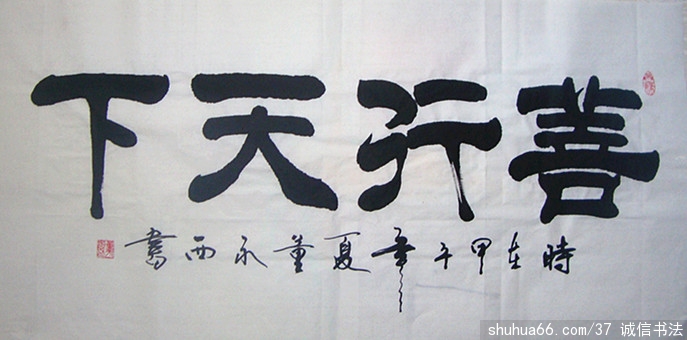 善行天下
時在甲午年夏董永西書
shuhua66.com/37 诚信书法